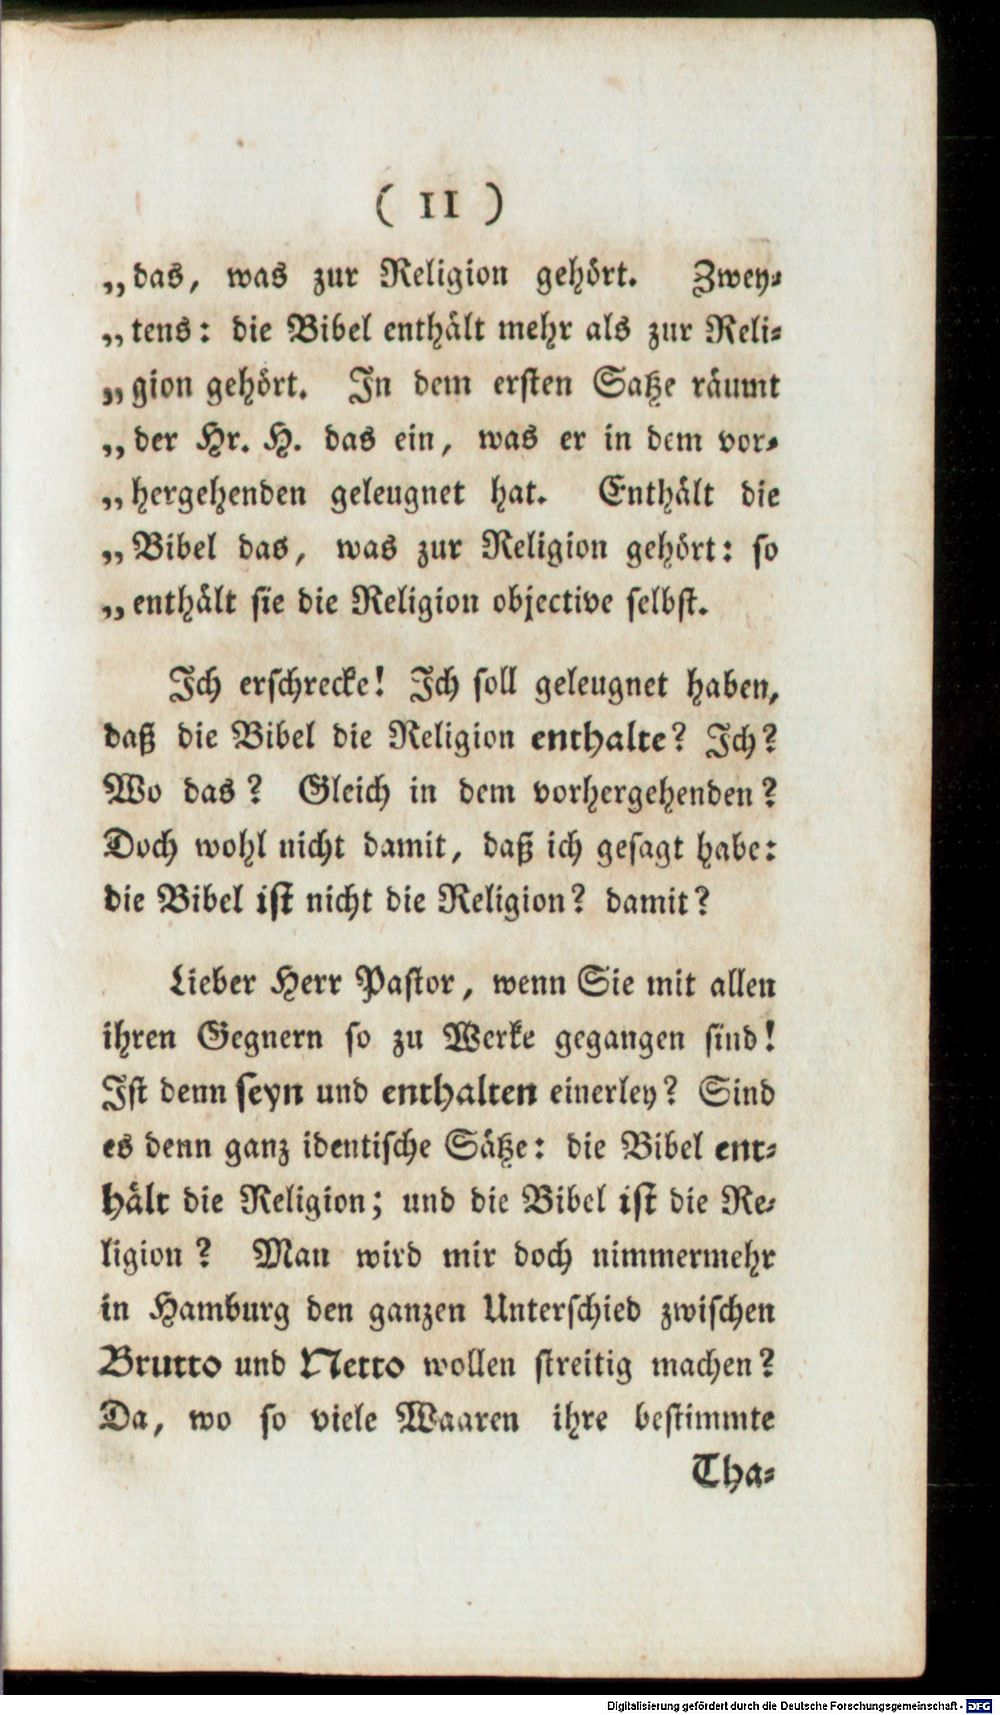 ( 11 )
„das, was zur Religion gehört. Zwey-
„tens: die Bibel enthält mehr als zur Reli-
„gion gehört. In dem ersten Satze räumt
„der Hr. H. das ein, was er in dem vor-
„hergehenden geleugnet hat. Enthält die
„Bibel das, was zur Religion gehört: so
„enthält sie die Religion objective selbst.
Ich erschrecke! Ich soll geleugnet haben,
daß die Bibel die Religion enthalte? Ich?
Wo das? Gleich in dem vorhergehenden?
Doch wohl nicht damit, daß ich gesagt habe:
die Bibel ist nicht die Religion? damit?
Lieber Herr Pastor, wenn Sie mit allen
ihren Gegnern so zu Werke gegangen sind!
Ist denn seyn und enthalten einerley? Sind
es denn ganz identische Sätze: die Bibel ent-
hält die Religion; und die Bibel ist die Re-
ligion? Man wird mir doch nimmermehr
in Hamburg den ganzen Unterschied zwischen
Brutto und Netto wollen streitig machen?
Da, wo so viele Waaren ihre bestimmte
Tha-
Digitalisierung gefördert durch die Deutsche Forschungsgemeinschaft - DFG